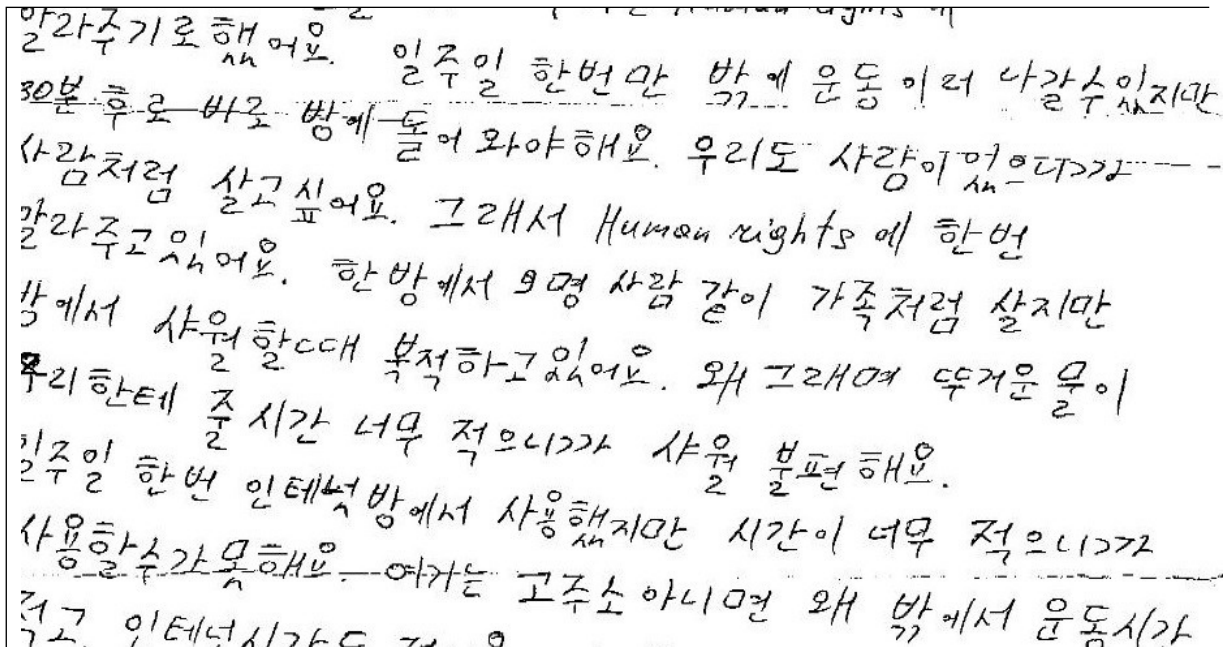 Human rights에
말라주기로했어요. 일주일 한번만 밖에 운동이러 나갈수있지만
30분후로 바로 방에 돌어 와야해요. 우리도 사람이 있으니까
사람처럼 살고 싶어요. 그래서 Human rights에 한번
말라주고있어요. 한방에서 9명 사람 같이 가족처럼 살지만
방에서 샤월할때 부적하고있어요. 왜 그래며 뚜거운물이
우리한테 줄시간 너무 적으니까 샤월 불편해요.
일주일 한번 인테넛방에서 사용했지만 시간이 너무 적으니까
사용할수가못해요. 여기는 고주소아니면 왜 밖에서 운동시가
적고 인테넛시간도